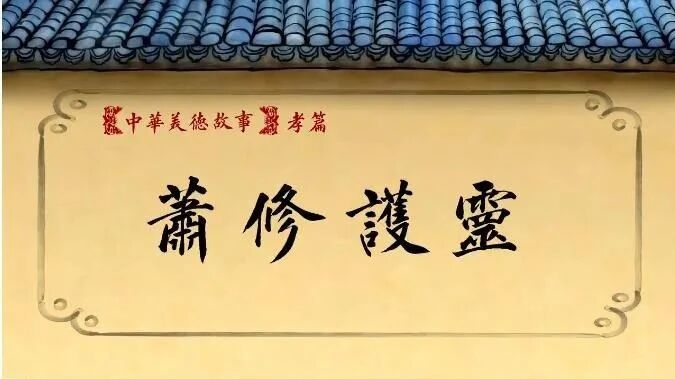 【中華美德故事】孝篇
蕭修護靈